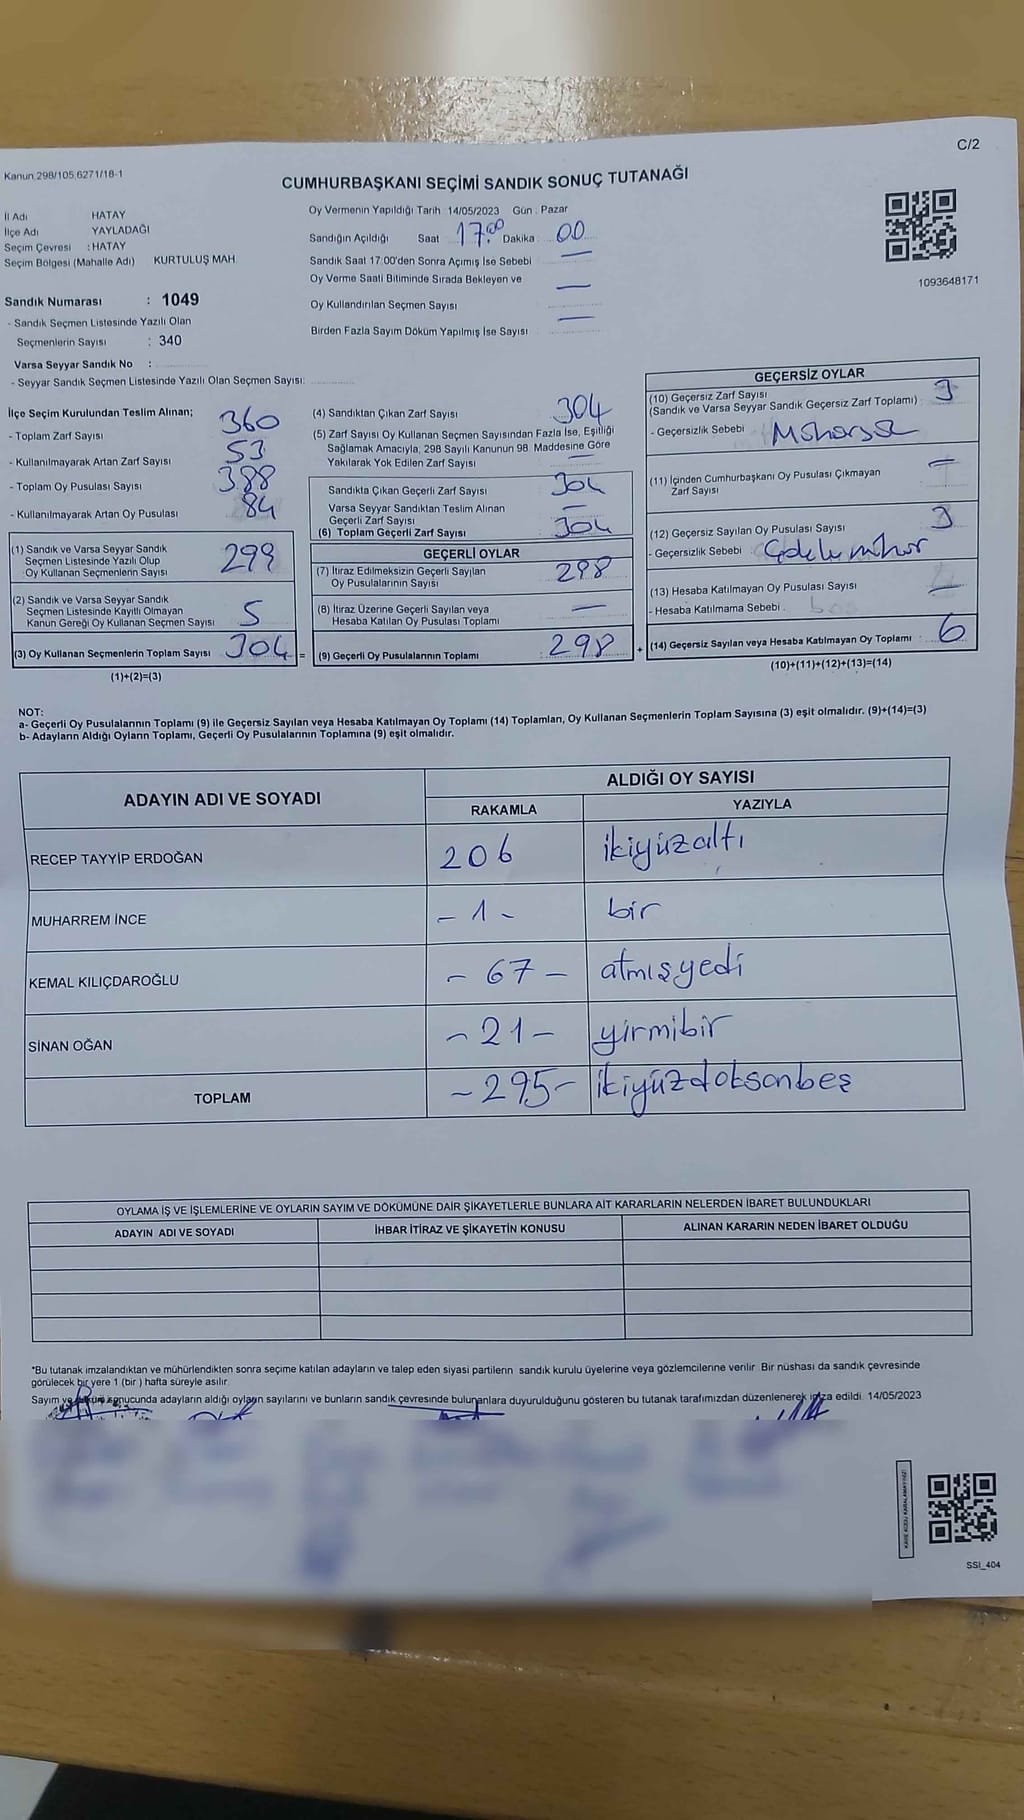 C/2
Kanun 298/105,6271/18-1
CUMHURBAŞKANI SEÇİMİ SANDIK SONUÇ TUTANAĞI
İl Adı HATAY
İlçe Adı YAYLADAĞI
Seçim Çevresi : HATAY
Seçim Bölgesi (Mahalle Adı) KURTULUŞ MAH.
Oy Vermenin Yapıldığı Tarih : 14/05/2023 Gün : Pazar
Sandığın Açıldığı Saat 17.00 Dakika : 00
Sandık Saat 17:00'den Sonra Açımış İse Sebebi —
Oy Verme Saati Bitiminde Sırada Bekleyen ve
Oy Kullandırılan Seçmen Sayısı —
Birden Fazla Sayım Döküm Yapılmış İse Sayısı —
1093648171
Sandık Numarası : 1049
- Sandık Seçmen Listesinde Yazılı Olan
Seçmenlerin Sayısı : 340
Varsa Seyyar Sandık No :
- Seyyar Sandık Seçmen Listesinde Yazılı Olan Seçmen Sayısı:
İlçe Seçim Kurulundan Teslim Alınan;
- Toplam Zarf Sayısı 360
- Kullanılmayarak Artan Zarf Sayısı 53
- Toplam Oy Pusulası Sayısı 388
- Kullanılmayarak Artan Oy Pusulası 84
(1) Sandık ve Varsa Seyyar Sandık
Seçmen Listesinde Yazılı Olup
Oy Kullanan Seçmenlerin Sayısı 299
(2) Sandık ve Varsa Seyyar Sandık
Seçmen Listesinde Kayıtlı Olmayan
Kanun Gereği Oy Kullanan Seçmen Sayısı 5
(3) Oy Kullanan Seçmenlerin Toplam Sayısı 304 =
(1)+(2)=(3)
(4) Sandıktan Çıkan Zarf Sayısı 304
(5) Zarf Sayısı Oy Kullanan Seçmen Sayısından Fazla İse, Eşitliği
Sağlamak Amacıyla, 298 Sayılı Kanunun 98 Maddesine Göre
Yakılarak Yok Edilen Zarf Sayısı —
Sandıkta Çıkan Geçerli Zarf Sayısı 304
Varsa Seyyar Sandıktan Teslim Alınan
Geçerli Zarf Sayısı —
(6) Toplam Geçerli Zarf Sayısı 304
GEÇERLİ OYLAR
(7) İtiraz Edilmeksizin Geçerli Sayılan
Oy Pusulalarının Sayısı 298
(8) İtiraz Üzerine Geçerli Sayılan veya
Hesaba Katılan Oy Pusulası Toplamı —
(9) Geçerli Oy Pusulalarının Toplamı 298 +
GEÇERSİZ OYLAR
(10) Geçersiz Zarf Sayısı
(Sandık ve Varsa Seyyar Sandık Geçersiz Zarf Toplamı) : 3
- Geçersizlik Sebebi
(11) İçinden Cumhurbaşkanı Oy Pusulası Çıkmayan
Zarf Sayısı —
(12) Geçersiz Sayılan Oy Pusulası Sayısı 3
- Geçersizlik Sebebi
(13) Hesaba Katılmayan Oy Pusulası Sayısı —
- Hesaba Katılmama Sebebi .
(14) Geçersiz Sayılan veya Hesaba Katılmayan Oy Toplamı : 6
(10)+(11)+(12)+(13)=(14)
NOT:
a- Geçerli Oy Pusulalarının Toplamı (9) ile Geçersiz Sayılan veya Hesaba Katılmayan Oy Toplamı (14) Toplamları, Oy Kullanan Seçmenlerin Toplam Sayısına (3) eşit olmalıdır. (9)+(14)=(3)
b- Adayların Aldığı Oyların Toplamı, Geçerli Oy Pusulalarının Toplamına (9) eşit olmalıdır.
ADAYIN ADI VE SOYADI ALDIĞI OY SAYISI
RAKAMLA YAZIYLA
RECEP TAYYİP ERDOĞAN 206 ikiyüzaltı
MUHARREM İNCE - 1 - bir
KEMAL KILIÇDAROĞLU - 67 - atmışyedi
SİNAN OĞAN - 21 - yirmibir
TOPLAM - 295 - ikiyüzdoksanbeş
OYLAMA İŞ VE İŞLEMLERİNE VE OYLARIN SAYIM VE DÖKÜMÜNE DAİR ŞİKAYETLERLE BUNLARA AİT KARARLARIN NELERDEN İBARET BULUNDUKLARI
ADAYIN ADI VE SOYADI İHBAR İTİRAZ VE ŞİKAYETİN KONUSU ALINAN KARARIN NEDEN İBARET OLDUĞU
*Bu tutanak imzalandıktan ve mühürlendikten sonra seçime katılan adayların ve talep eden siyasi partilerin sandık kurulu üyelerine veya gözlemcilerine verilir. Bir nüshası da sandık çevresinde
görülecek bir yere 1 (bir ) hafta süreyle asılır.
Sayım ve sonucunda adayların aldığı oyların sayılarını ve bunların sandık çevresinde bulunanlara duyurulduğunu gösteren bu tutanak tarafımızdan düzenlenerek imza edildi. 14/05/2023
SSI_404